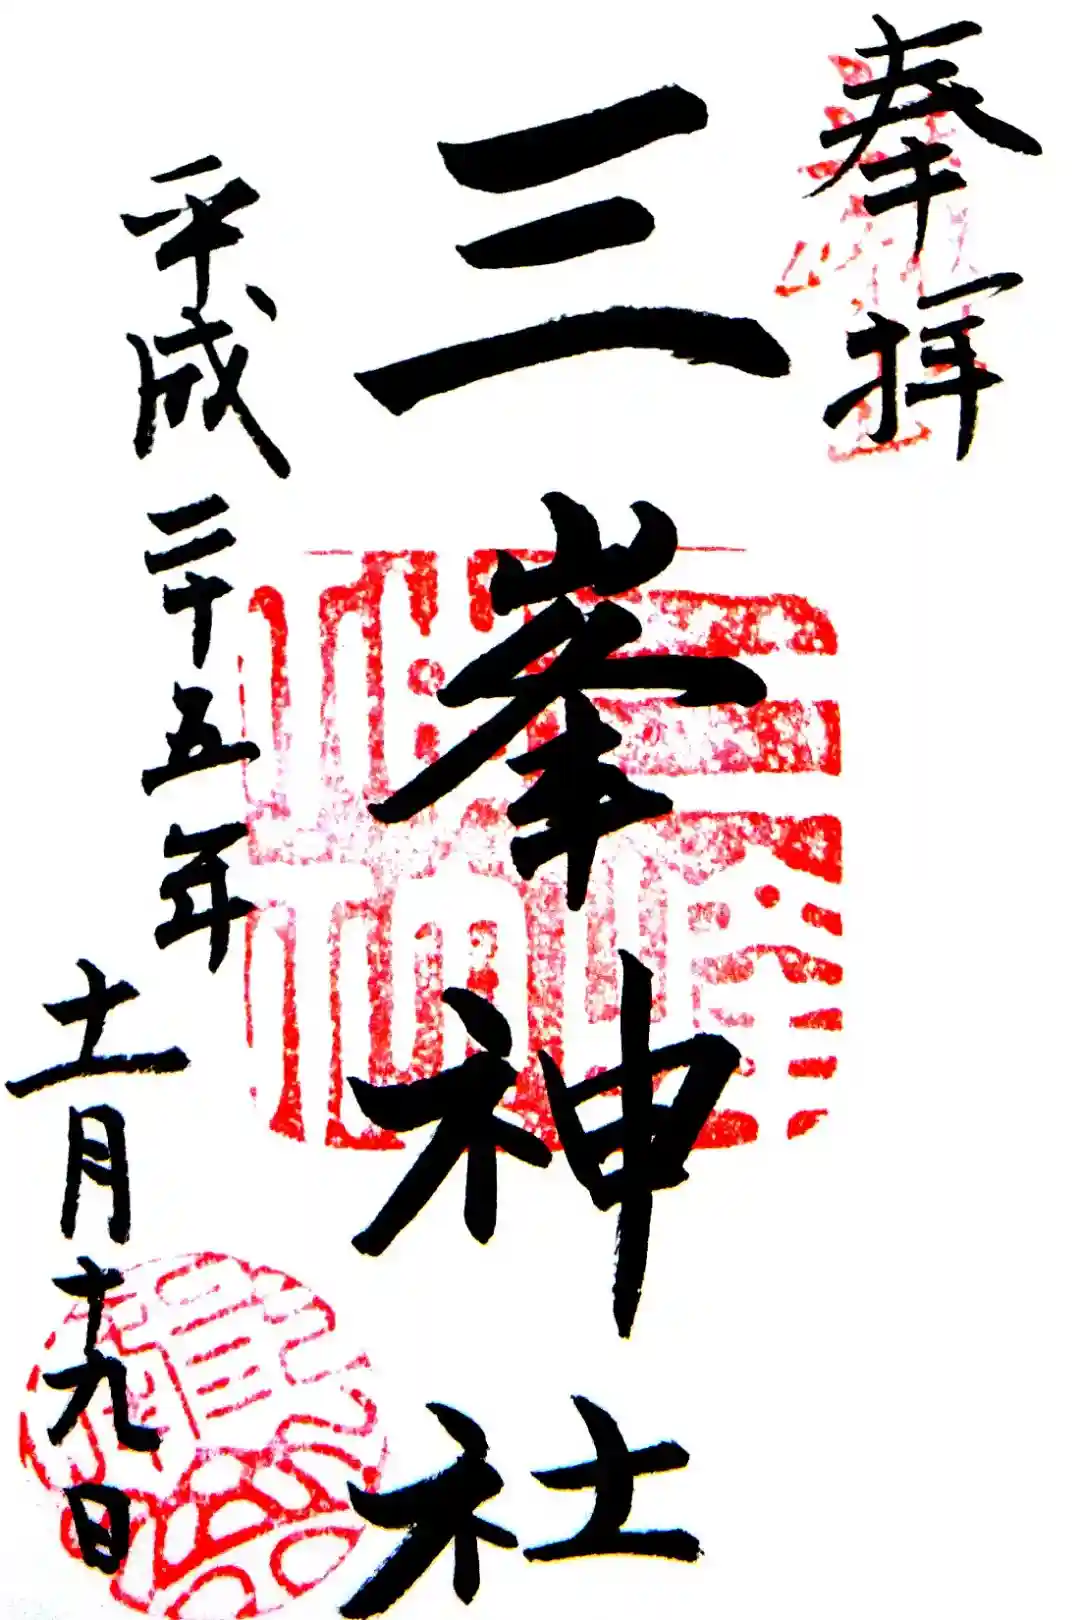 奉拝
三峯神社
平成二十五年
十一月十九日